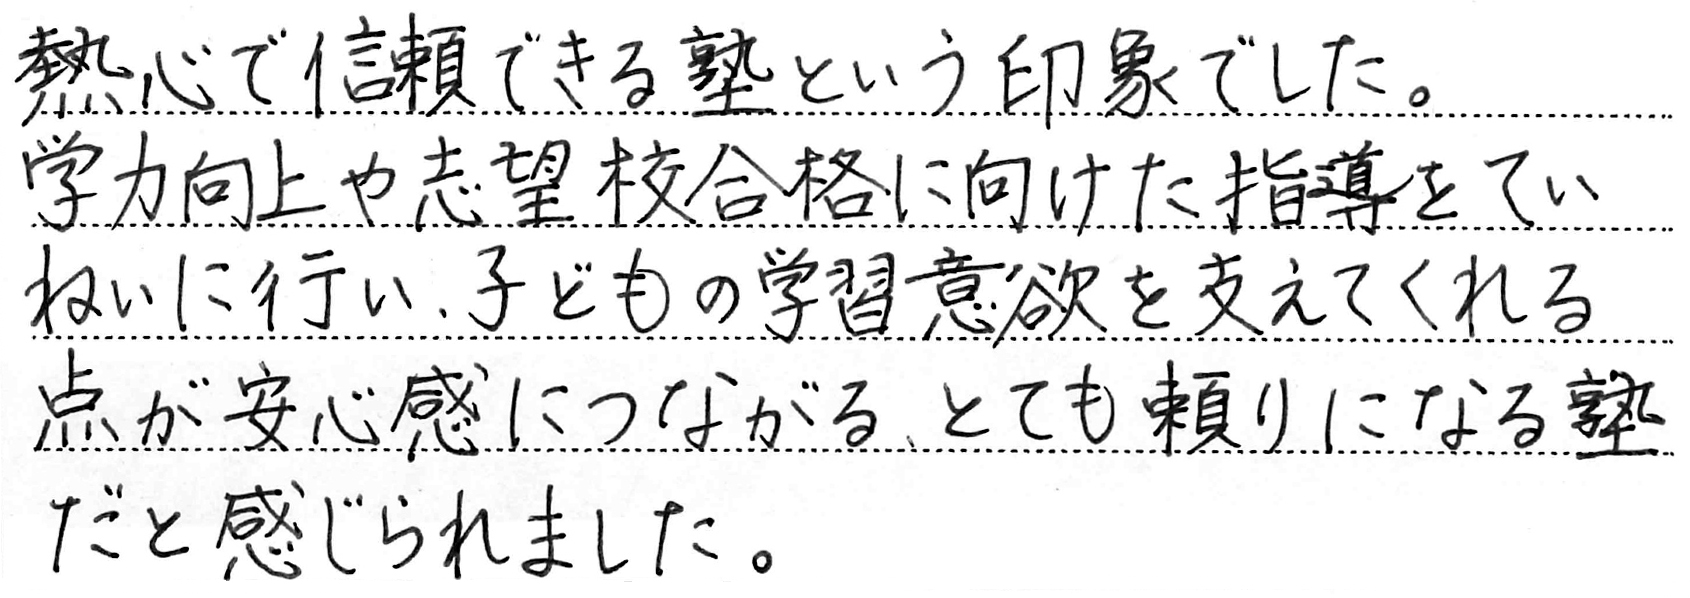 熱心で信頼できる塾という印象でした。
学力向上や志望校合格に向けた指導をてい
ねいに行い、子どもの学習意欲を支えてくれる
点が安心感につながる、とても頼りになる塾
だと感じられました。